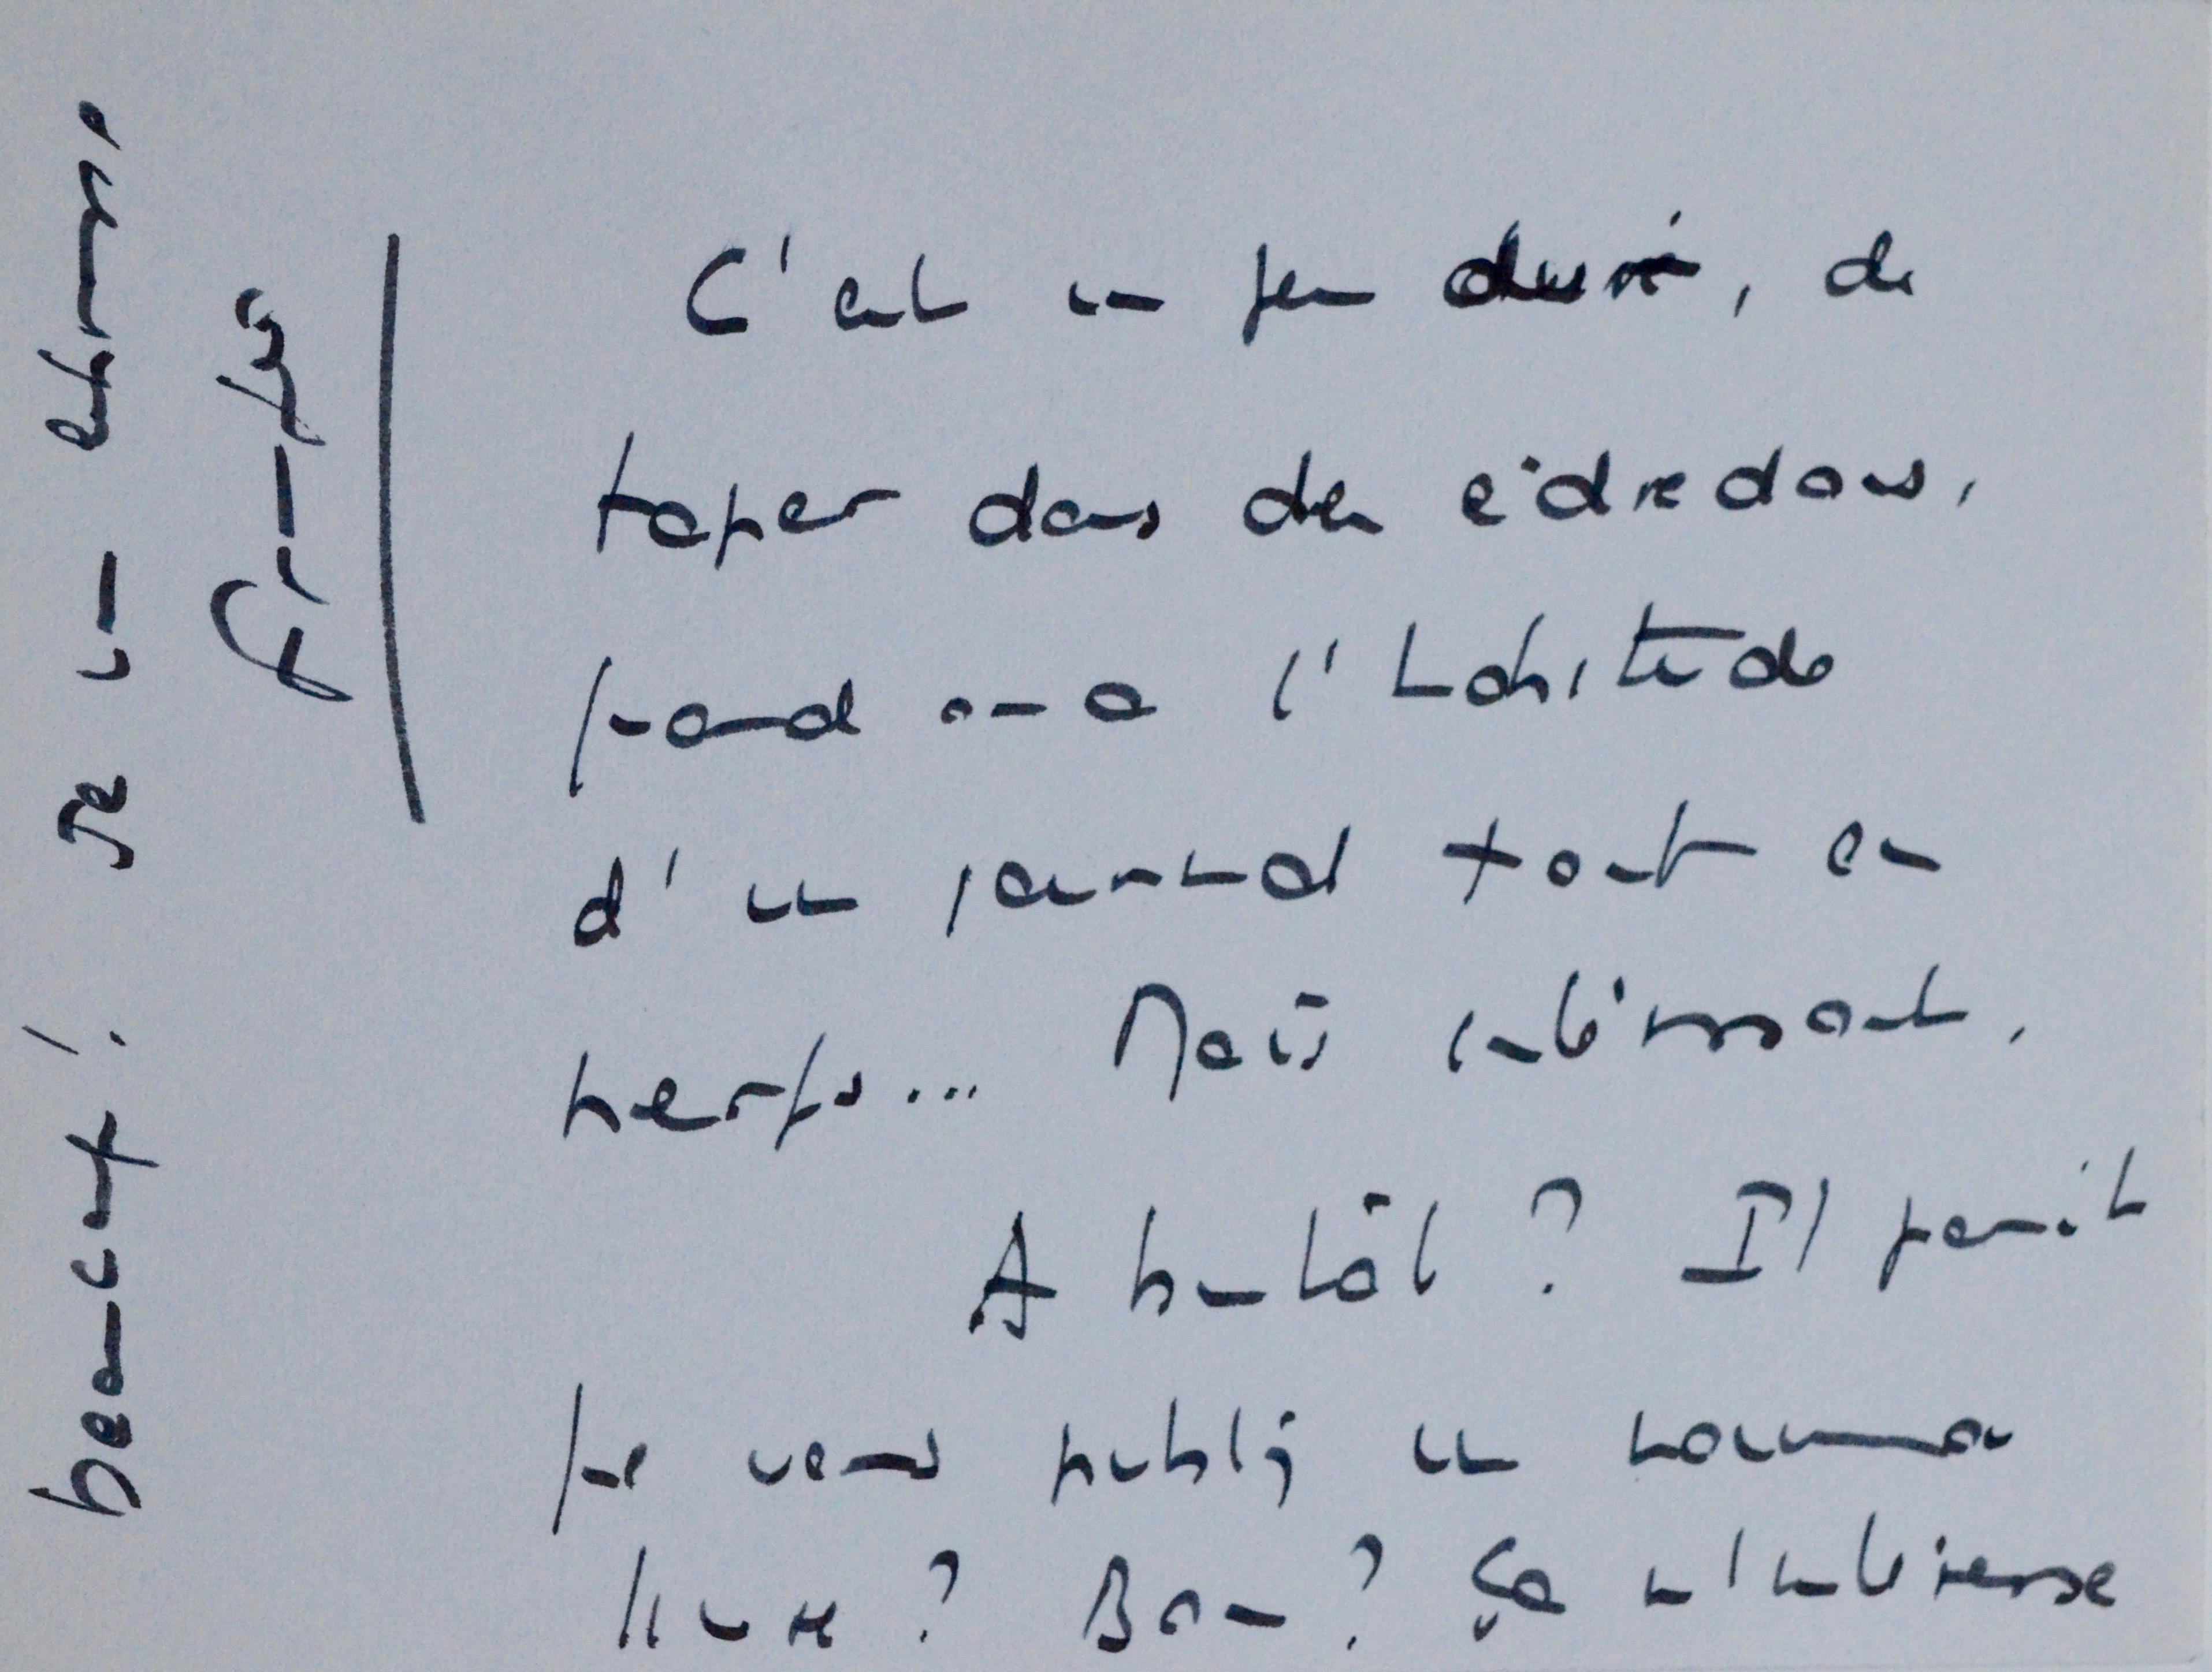 C'est un peu dur, de
taper dans des édredons,
quand on a l'habitude
d'un journal tout en
nerfs... Mais intéressant.
A bientôt ? Il paraît
que vous publiez un nouveau
livre ? Bon ? Ça m'intéresse
beaucoup ! Je vous embrasse,